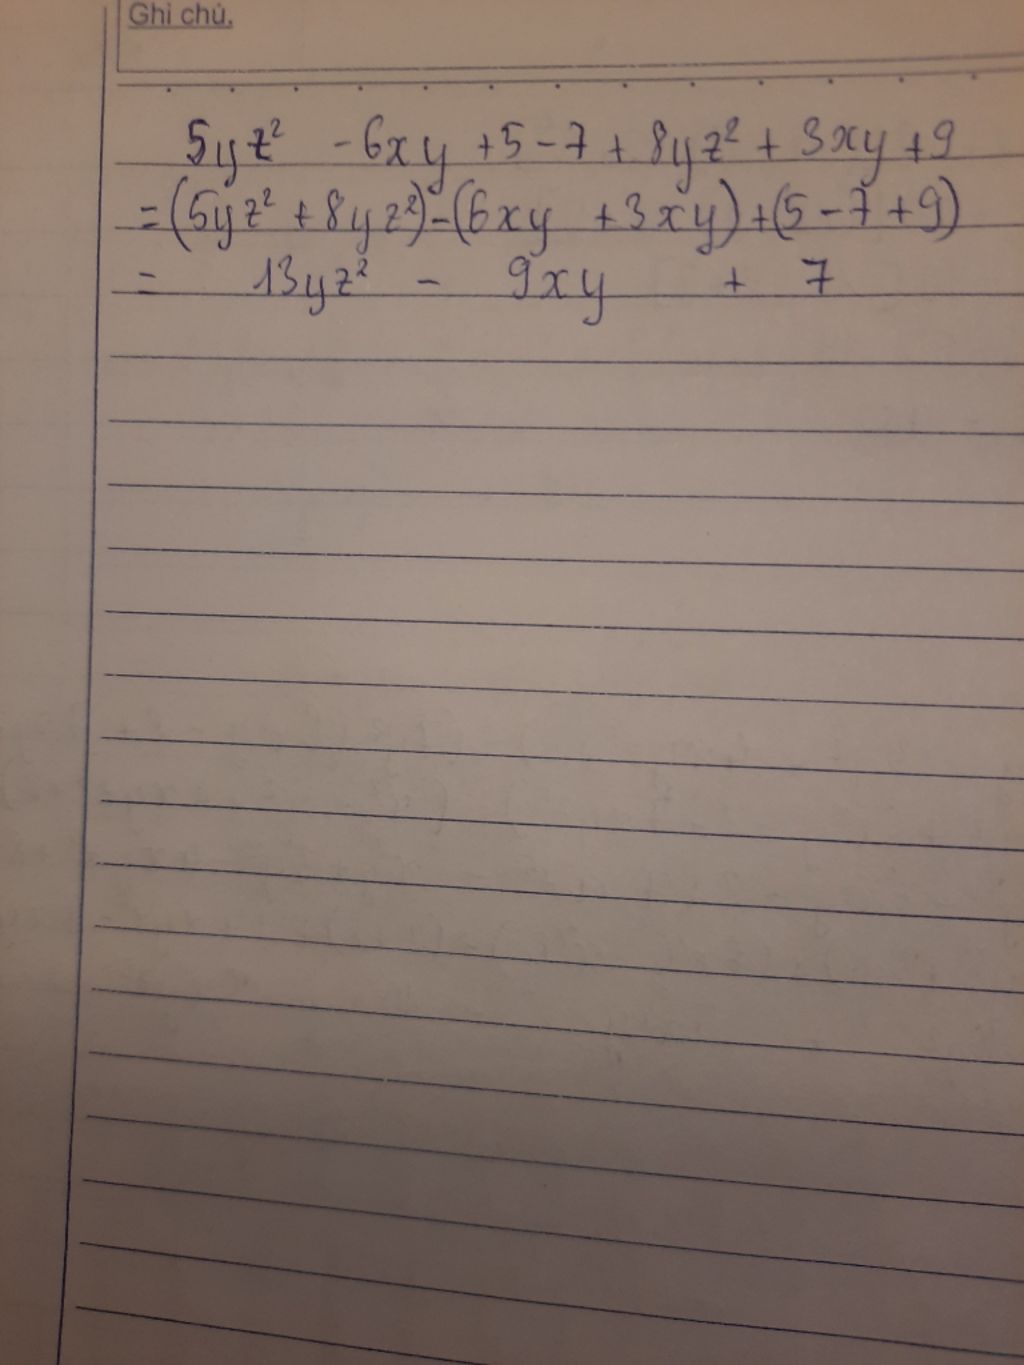 Ghi chú.
5yz² - 6xy + 5 - 7 + 8yz² + 3xy + 9
= (5yz² + 8yz²) - (6xy + 3xy) + (5 - 7 + 9)
= 13yz² - 9xy + 7